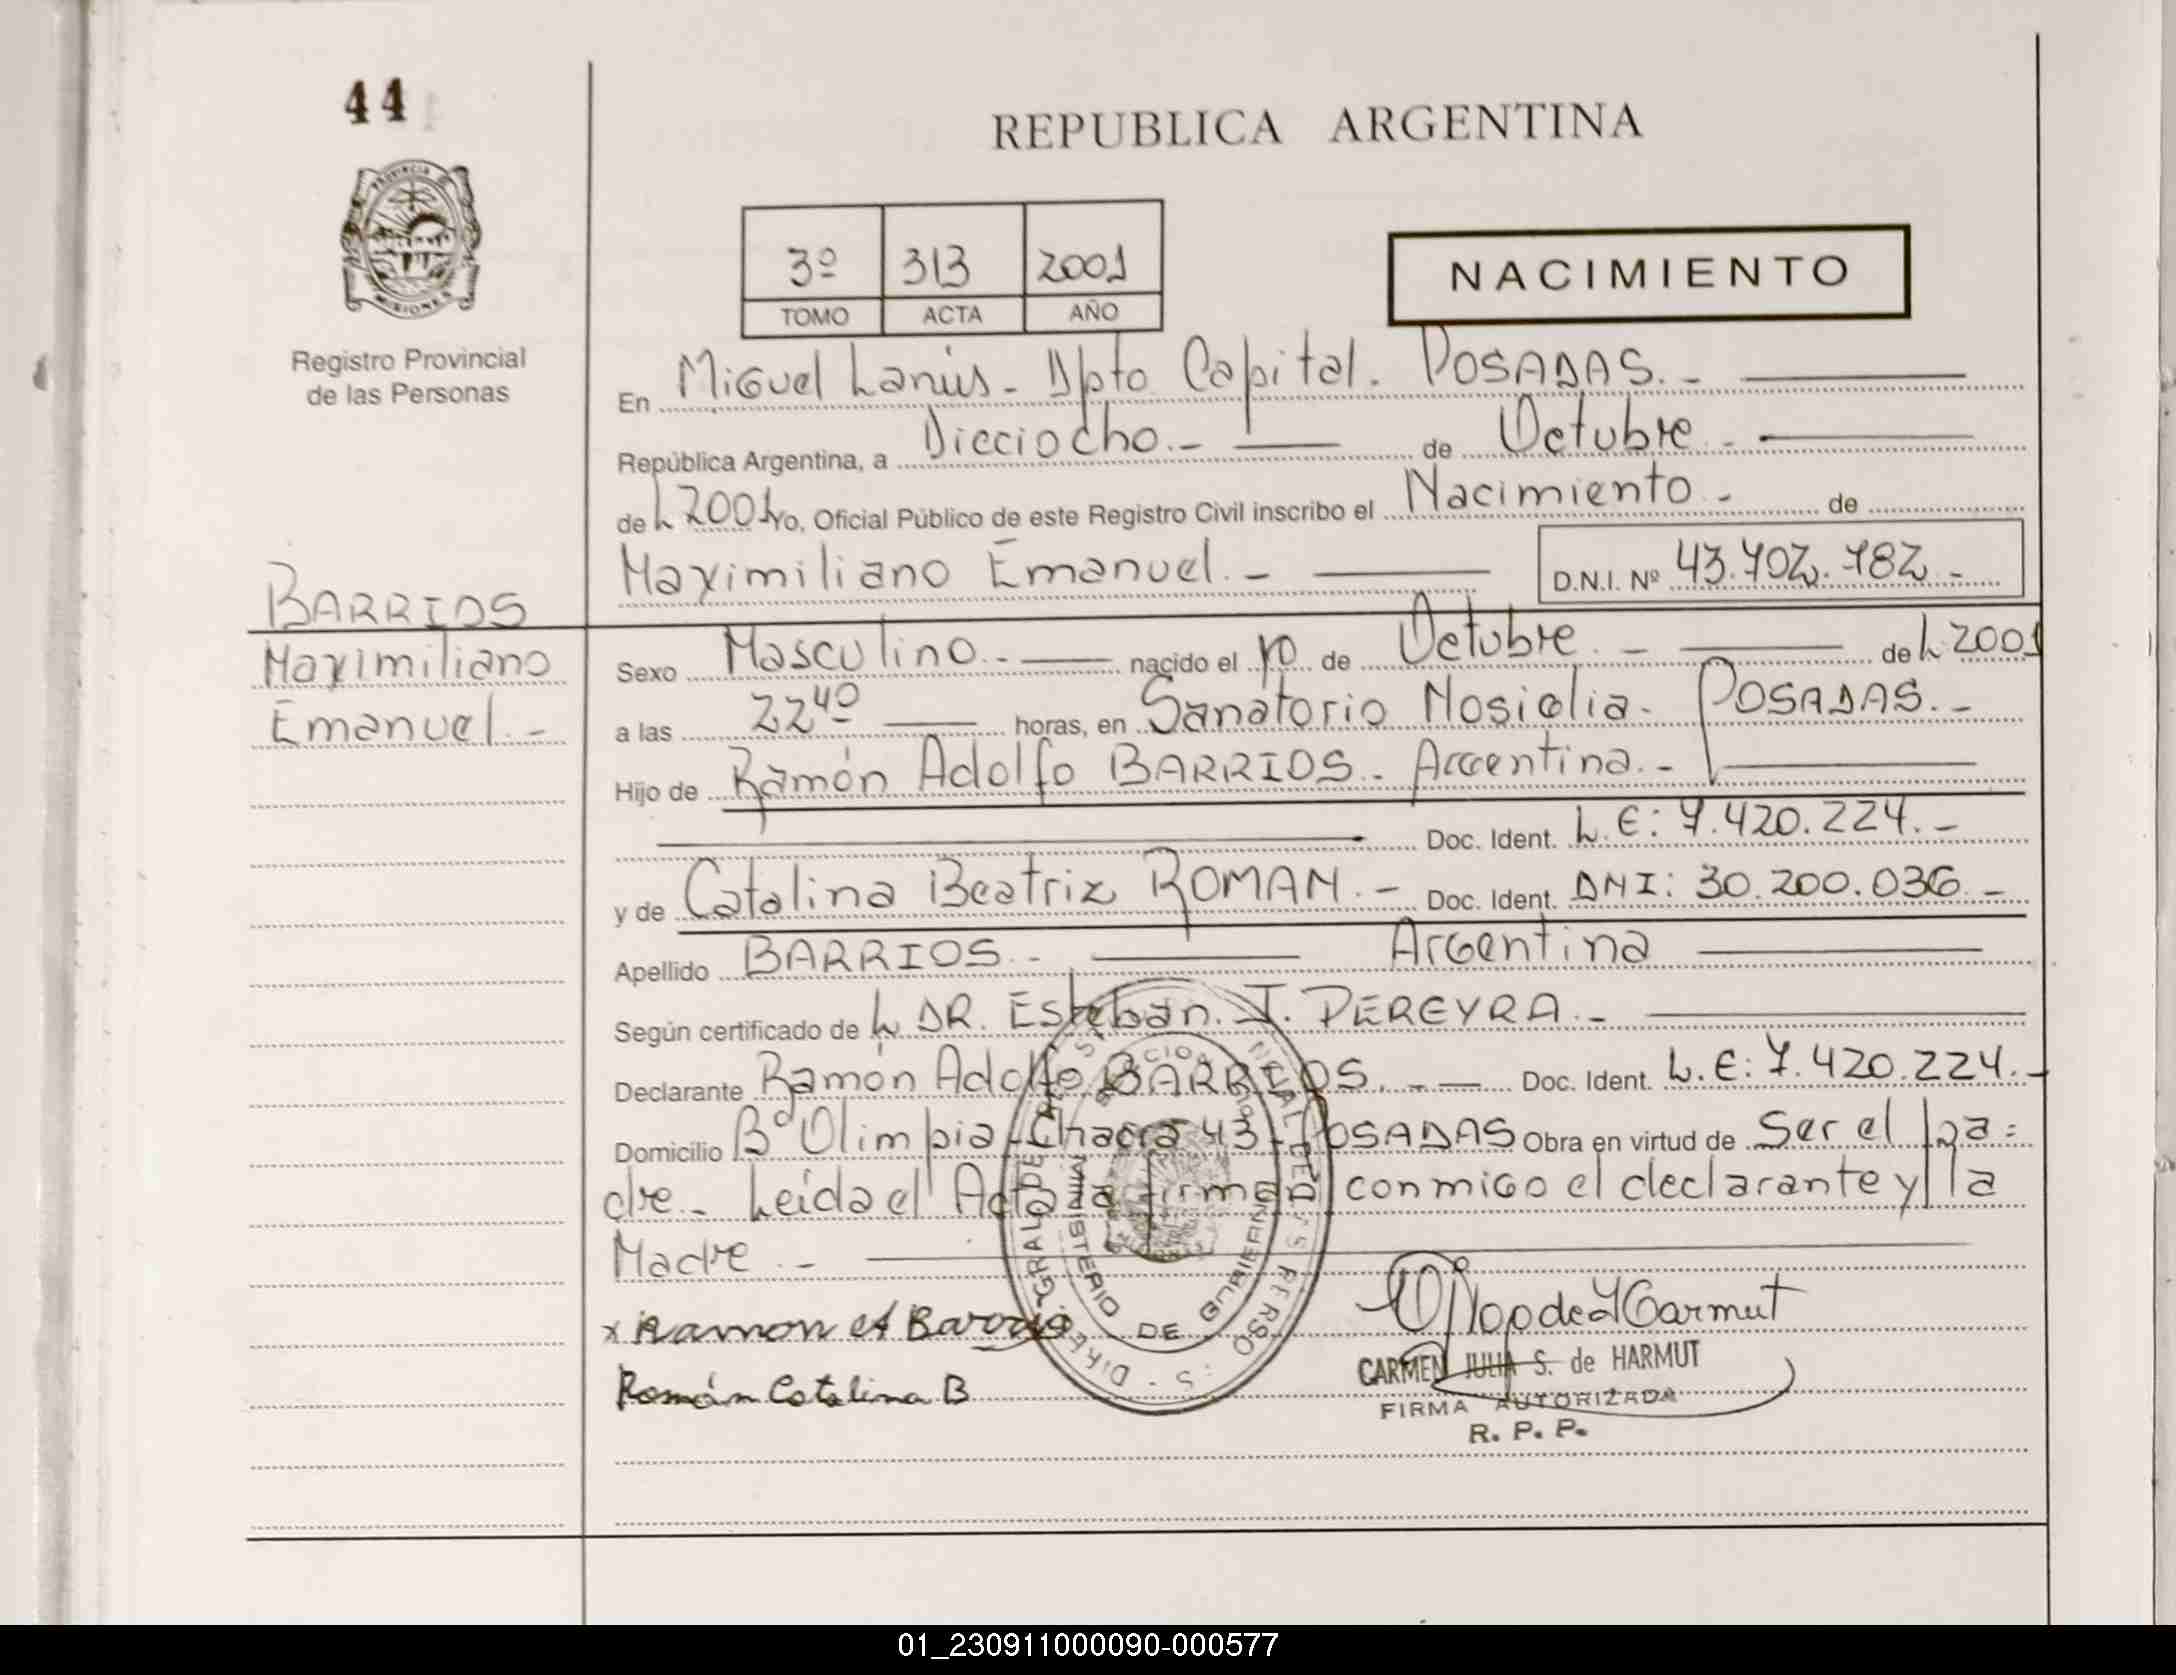 44
REPUBLICA ARGENTINA
PROVINCIA
MISIONES
3º 313 2001
TOMO ACTA AÑO
NACIMIENTO
Registro Provincial
de las Personas
En Miguel Lanús - Dpto Capital. POSADAS. -
República Argentina, a Dieciocho. - de Octubre. -
de L 2001 Yo, Oficial Público de este Registro Civil inscribo el Nacimiento. - de
Maximiliano Emanuel. - D.N.I. Nº 43.702.782 -
BARRIOS
Maximiliano
Emanuel. -
Sexo Masculino. - nacido el 10 de Octubre. - de L 2001
a las 22⁴⁰ horas, en Sanatorio Nosiglia. POSADAS. -
Hijo de Ramón Adolfo BARRIOS. - Argentina. -
Doc. Ident. L.E: 7.420.224. -
y de Catalina Beatriz ROMAN. - Doc. Ident. DNI: 30.200.036. -
Apellido BARRIOS. - Argentina
Según certificado de L DR. Esteban. J. PEREYRA. -
Declarante Ramón Adolfo BARRIOS. - Doc. Ident. L.E: 7.420.224. -
Domicilio Bº Olimpia - Chacra 43 - POSADAS Obra en virtud de Ser el Pa=
dre. - Leída el Acta la firman conmigo el declarante y la
Madre. -
MINISTERIO DE GOBIERNO
x Ramon A Barrios
Román Catalina B
CARMEN JULIA S. de HARMUT
FIRMA AUTORIZADA
R. P. P.
01_230911000090-000577